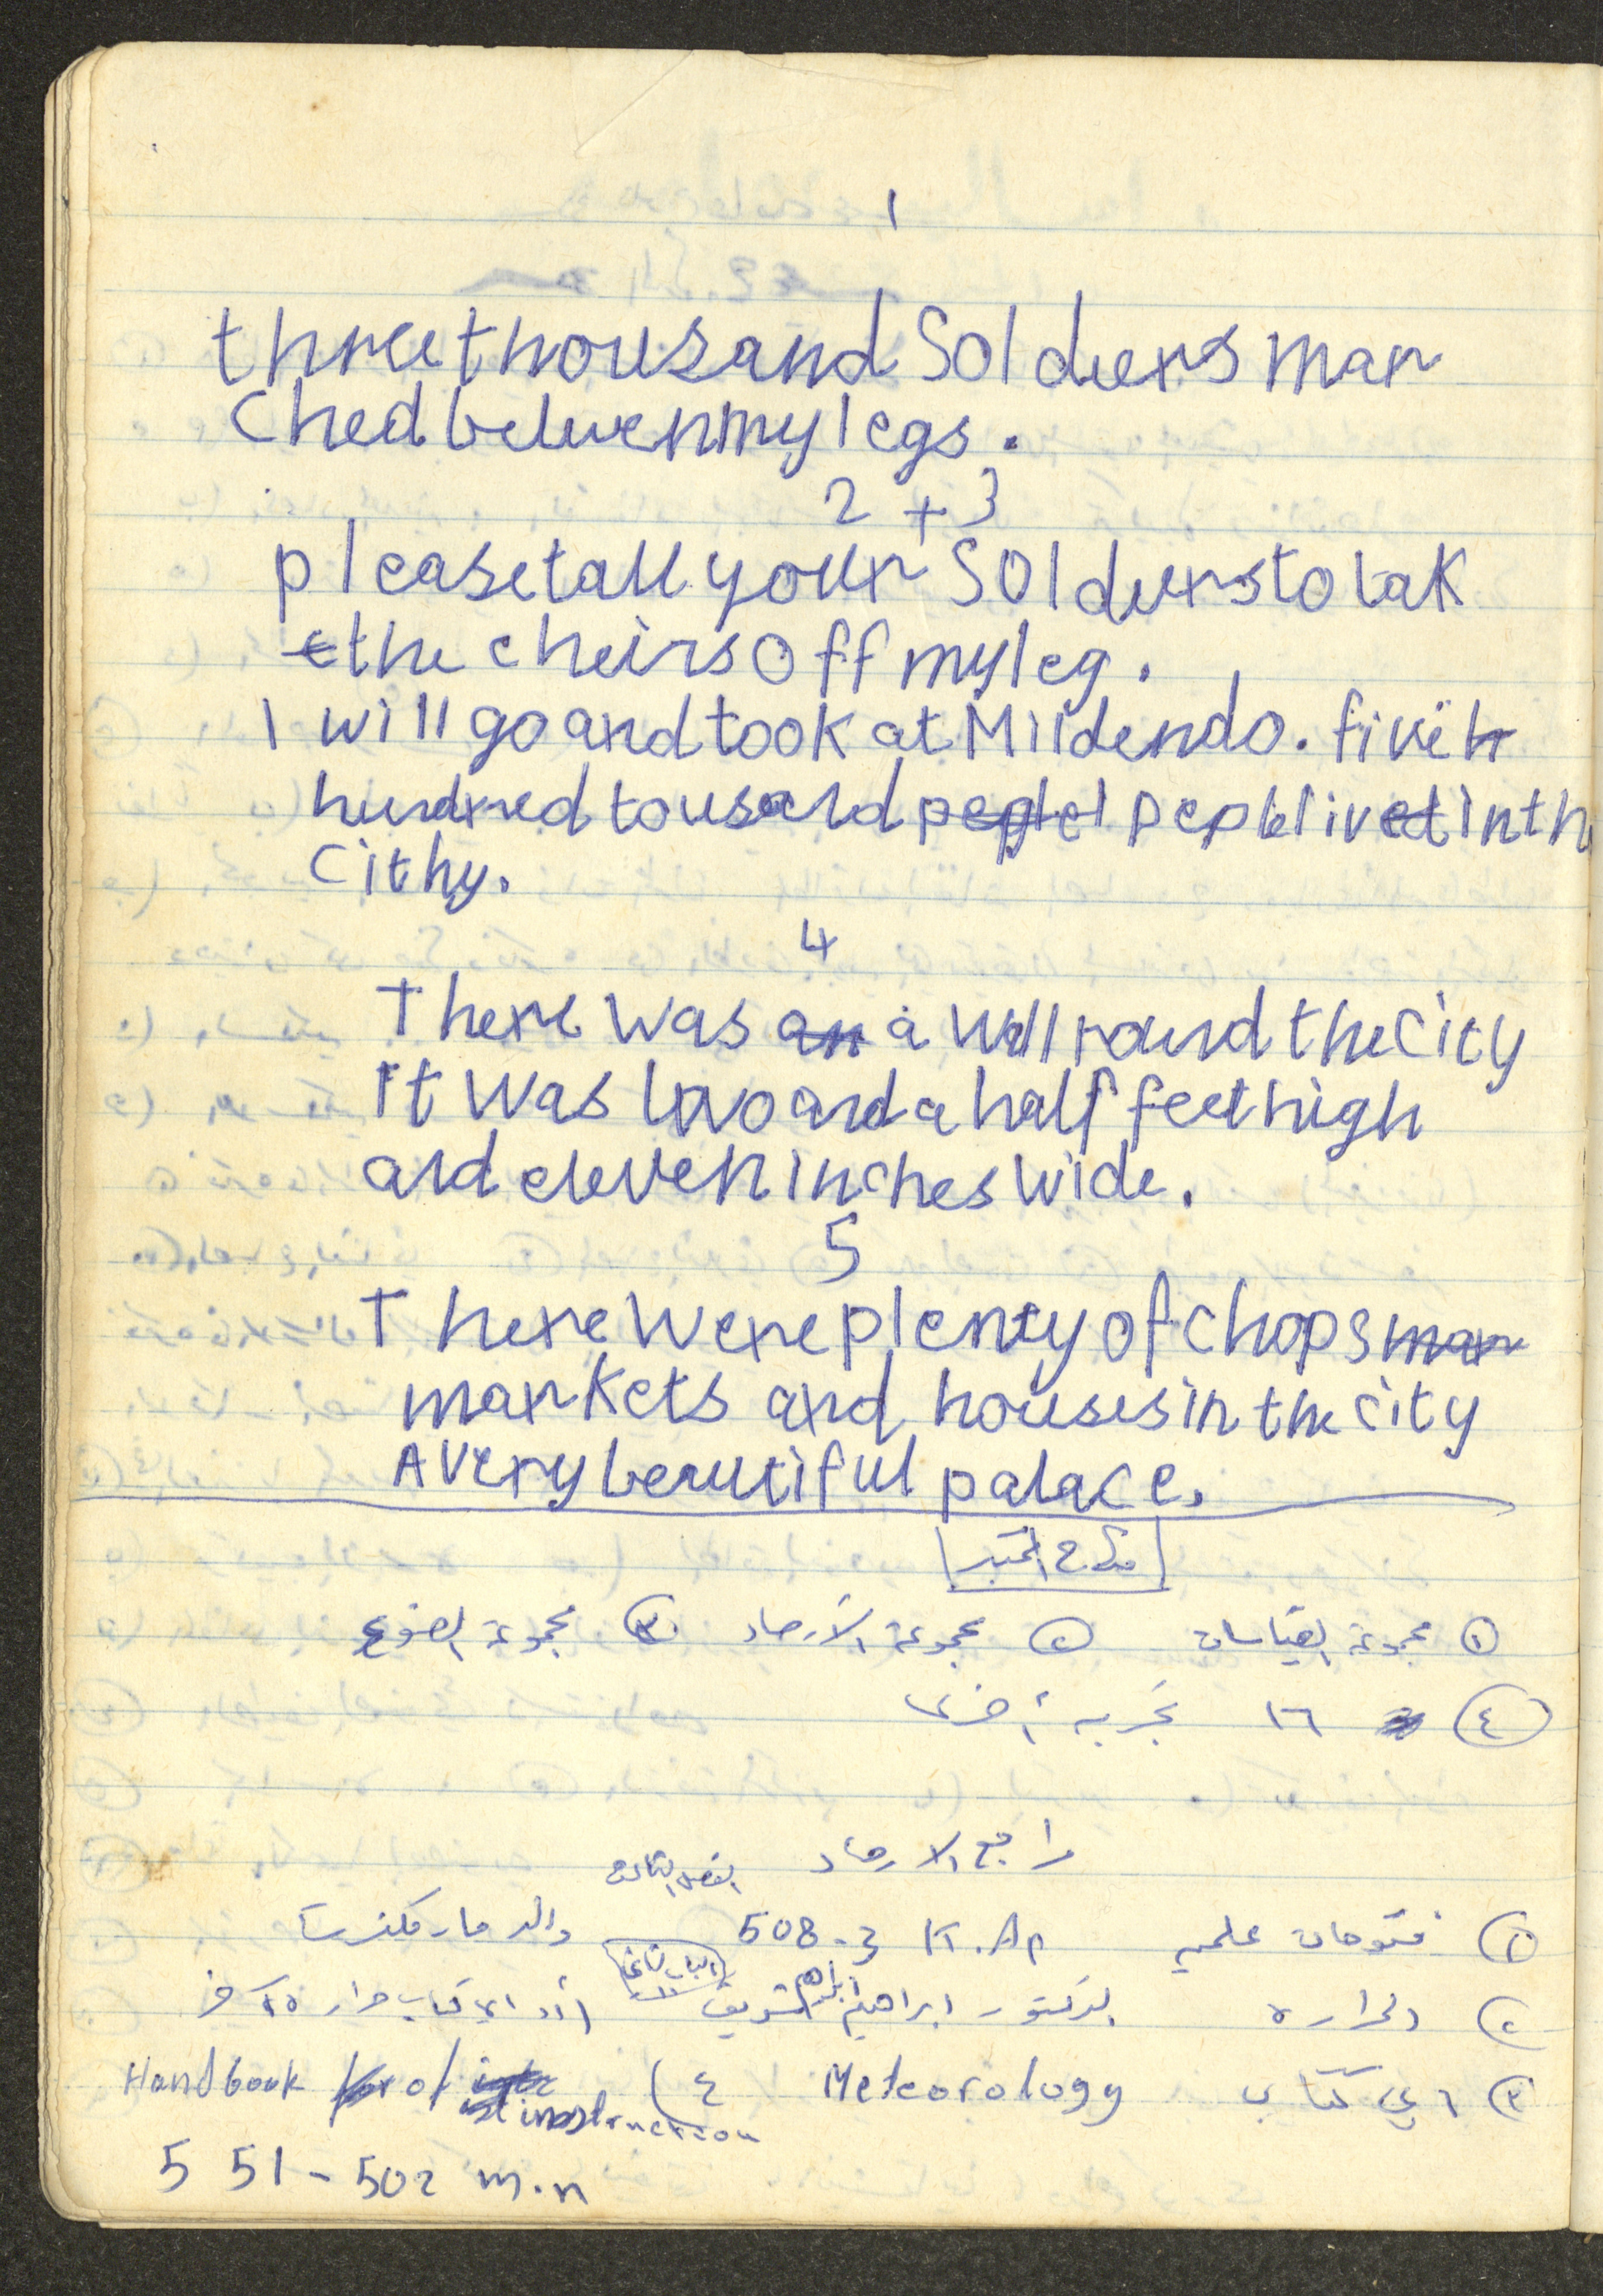 1
three thousand Soldiers mar
ched betwen my legs.
2 + 3
please tall your Soldiers to tak
e the cheirs off my leg.
I will go and took at Mildendo. five h
hundred tousand pepl lived in th
Cithy.
4
There was an a wall round the City
It was two and a half feet high
and eleven inches wide.
5
There were plenty of chops mar
markets and houses in the city
A very beautiful palace.
① مجموعة القياسات ② مجموعة الأرصاد ③ مجموعة الضوء
④ ١٦ تجربة أخرى
مراجع الارصاد الفصل الثالث
① فتوحات علمية 508.3 K.Ap
② الحرارة الدكتور ابراهيم شريف
③ أي كتاب Meteorology ٤) Handbook for of instruction
551-502 m.n